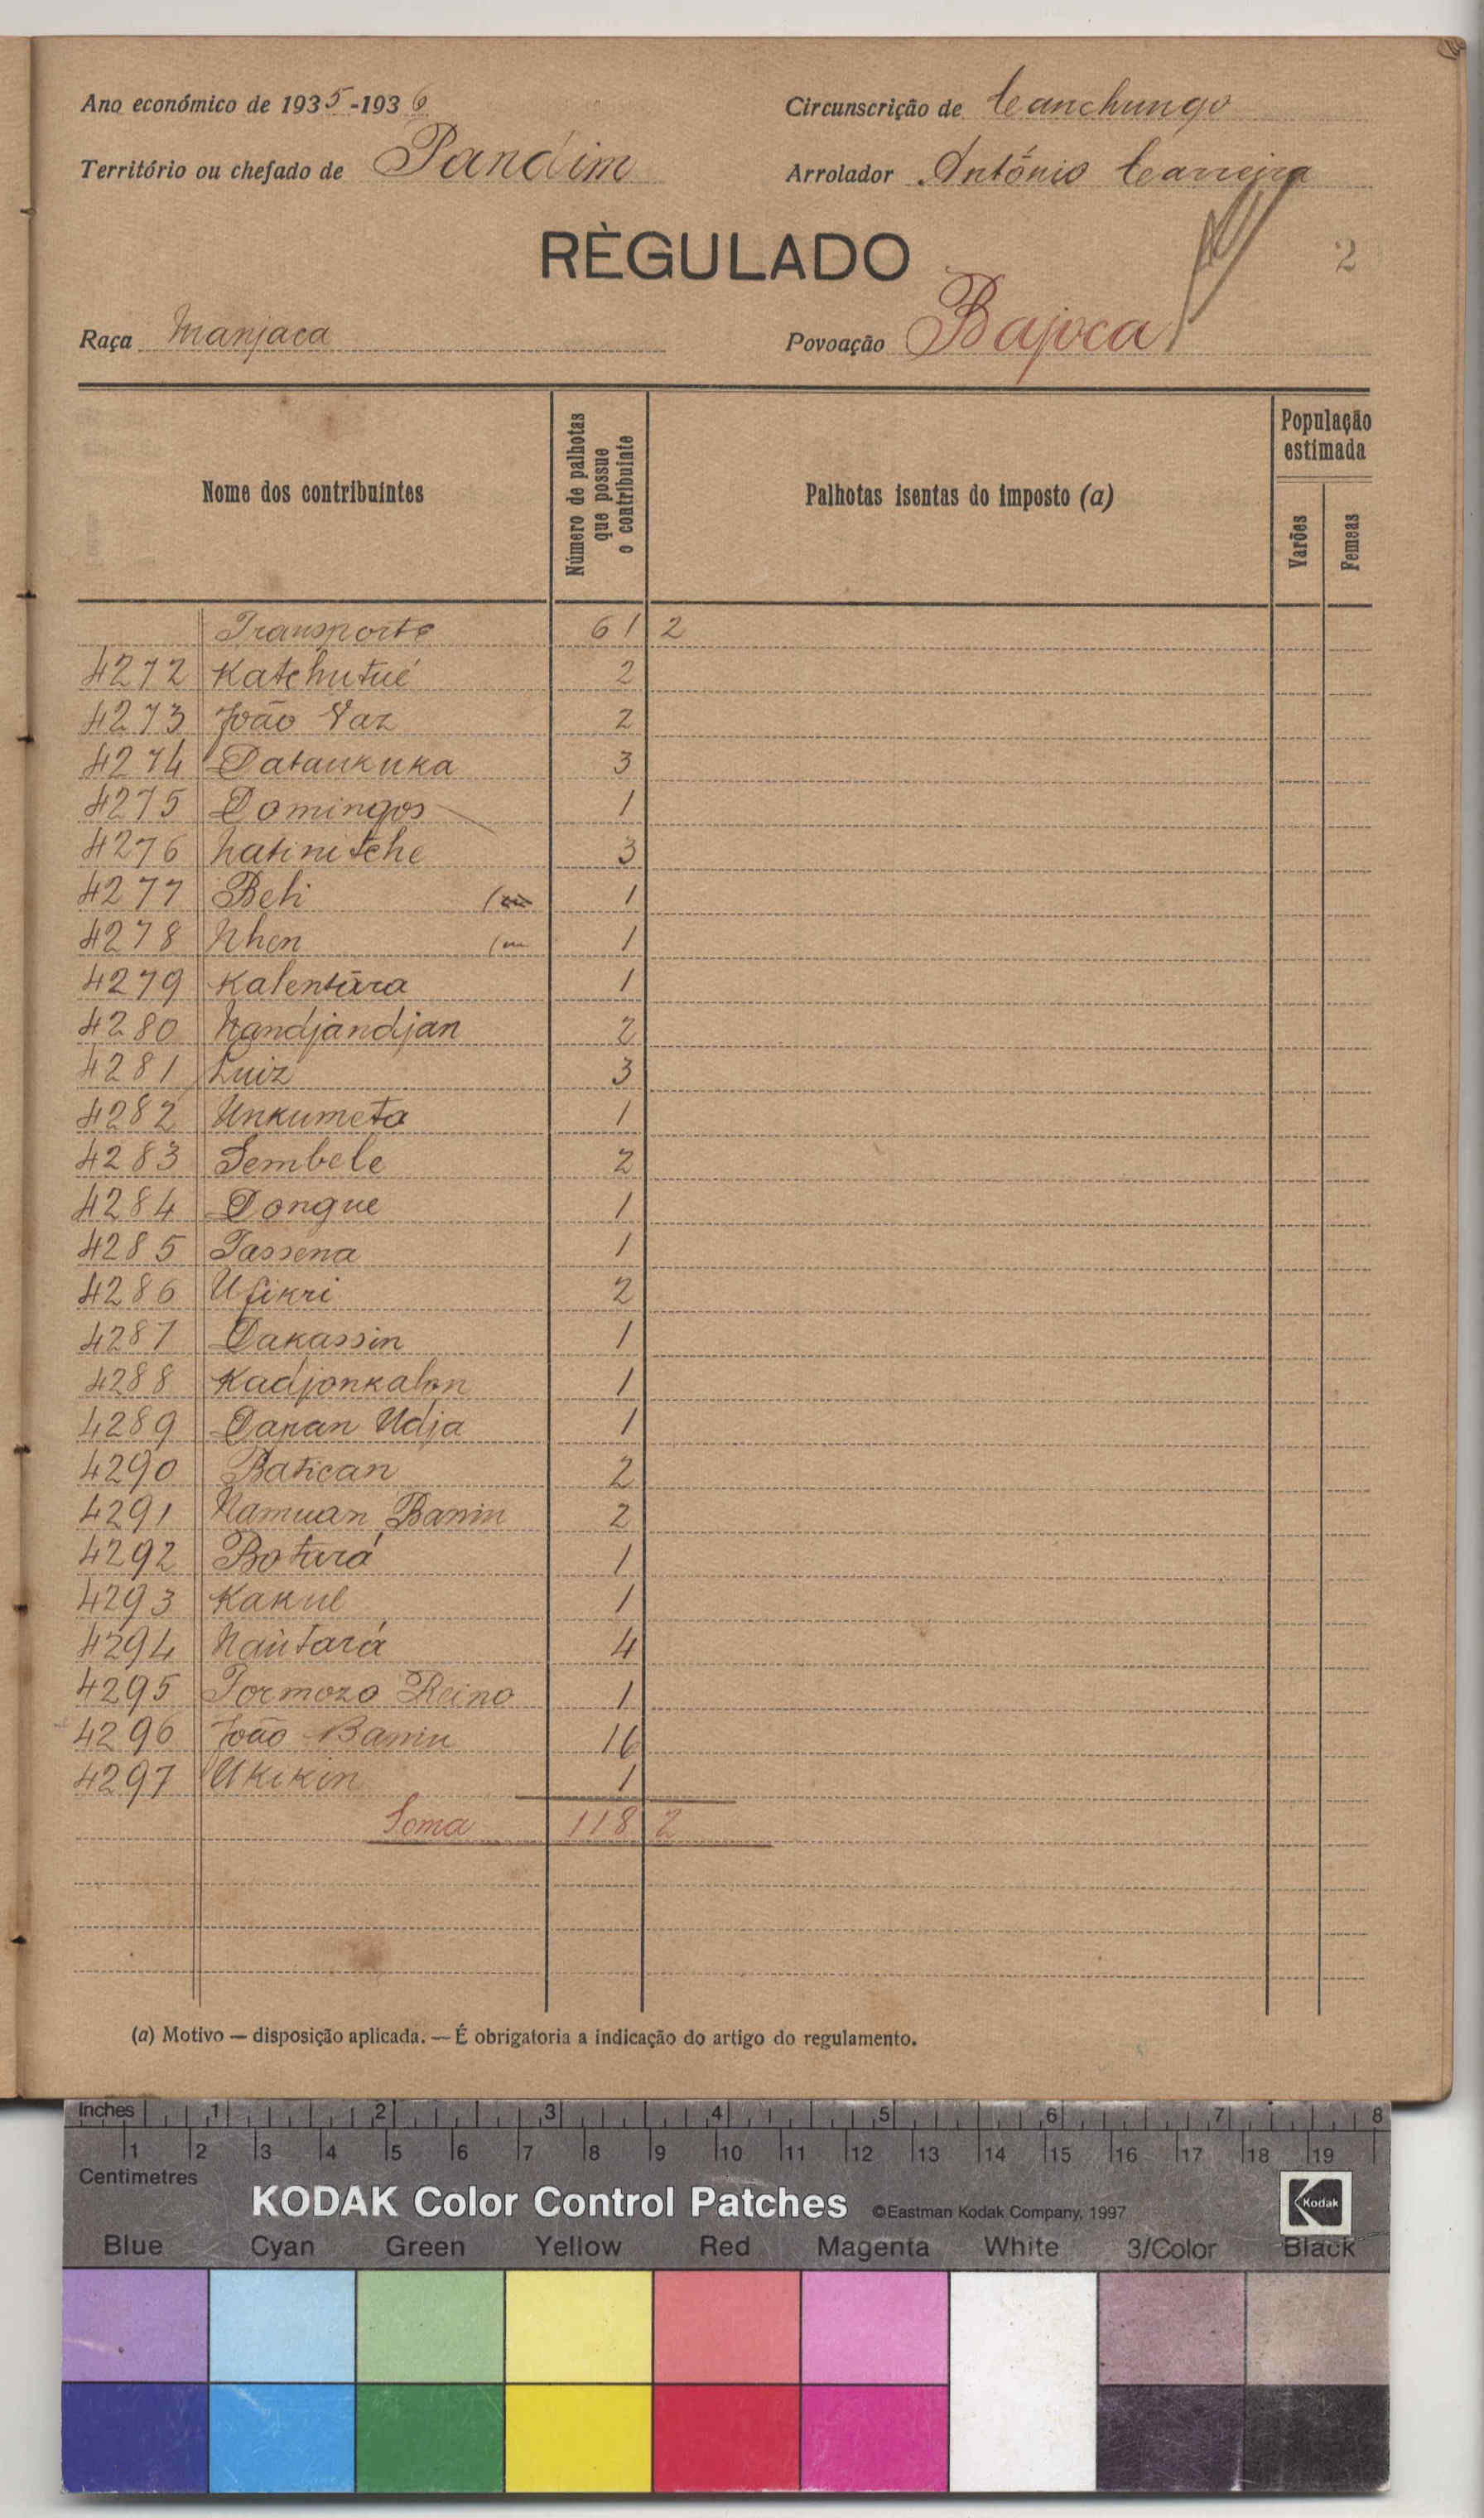 Ano económico de 1935-1936
Circunscrição de Canchungo
Território ou chefado de Pandim
Arrolador António Carreira
RÈGULADO
2
Raça Manjaca
Povoação Bajoca
Nome dos contribuintes
Número de palhotas que possue o contribuinte
Palhotas isentas do imposto (a)
População estimada
Varões
Femeas
Transporte 61 2
4272 Katchutué 2
4273 João Vaz 2
4274 Dataukuka 3
4275 Domingos 1
4276 Natinitche 3
4277 Beti 1
4278 Nhen 1
4279 Kalentāra 1
4280 Nandjandjan 2
4281 Luiz 3
4282 Unkumeta 1
4283 Sembele 2
4284 Dongue 1
4285 Tassena 1
4286 Ufikri 2
4287 Dakassin 1
4288 Kadjonkalon 1
4289 Dapan Udja 1
4290 Batican 2
4291 Namuan Banin 2
4292 Boturá 1
4293 Kakul 1
4294 Naútará 4
4295 Formozo Reino 1
4296 João Banin 16
4297 Ukikin 1
Soma 118 2
(a) Motivo — disposição aplicada. — É obrigatoria a indicação do artigo do regulamento.
Inches 1 2 3 4 5 6 7 8
1 2 3 4 5 6 7 8 9 10 11 12 13 14 15 16 17 18 19
Centimetres
KODAK Color Control Patches ©Eastman Kodak Company, 1997 Kodak
Blue Cyan Green Yellow Red Magenta White 3/Color Black